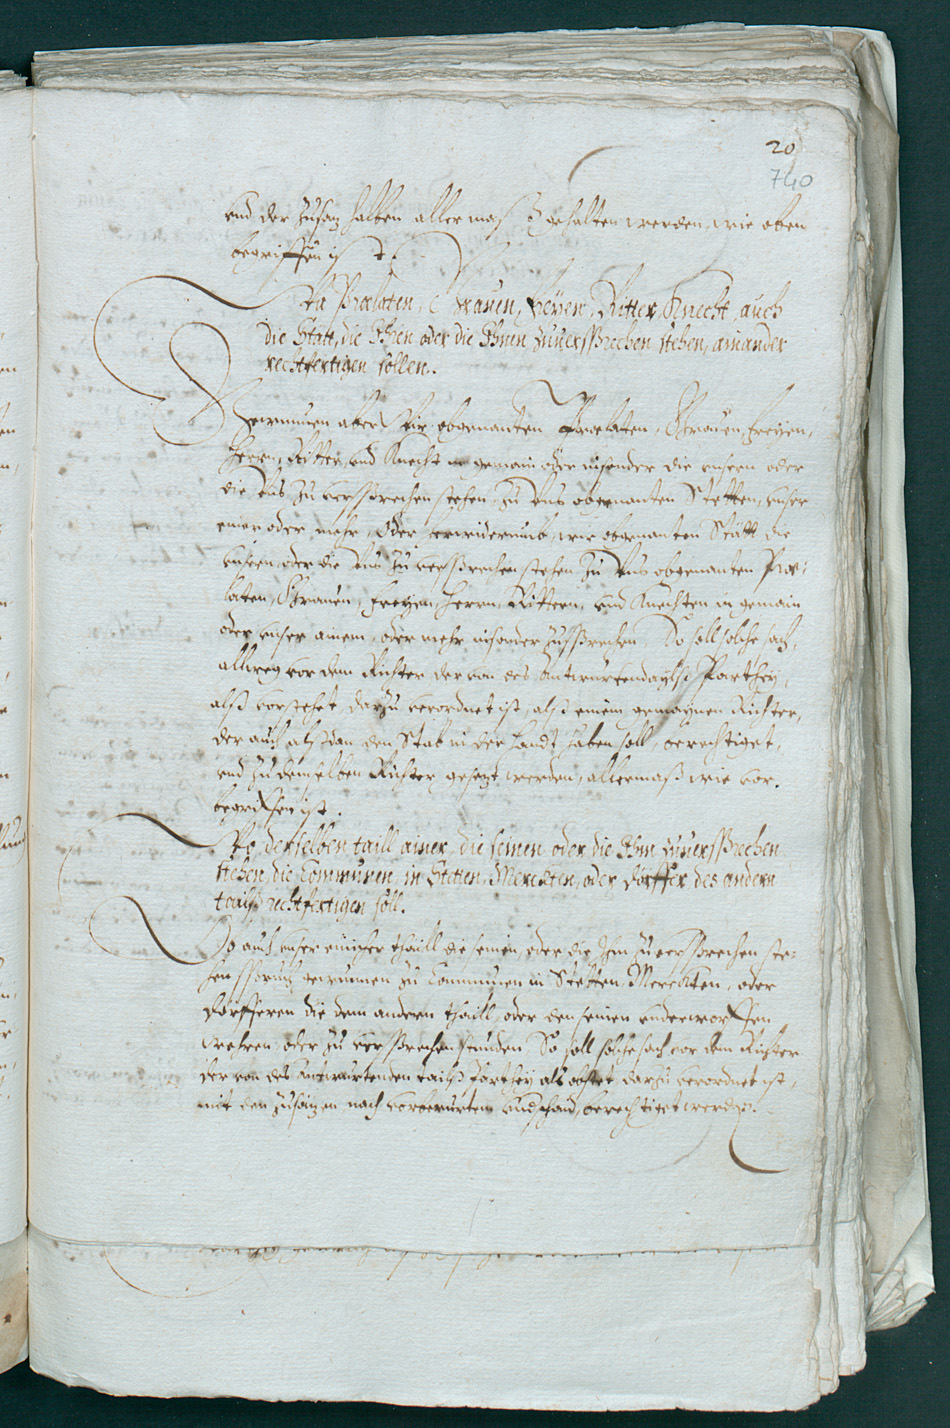 20
740
vnd der Zusatz halben aller maß gehalten werden, wie oben
begriffen ist.
Wa Prælaten, Grauen, Freyen, Ritter, Knecht, auch
die Stätt, die Ihren oder die Ihnen zuuersprechen stehen, ainander
rechtfertigen sollen.
Gewunnen aber Wir obgenanten Prælaten, Grauen, Freyen,
Herrn, Ritter, vnd Knecht in gemain oder insonder die vnsern oder
die Vns zu versprechen stehen, zu Vns obgenanten Stetten, vnser
einer oder mehr, Oder herwiderumb, wir obgenanten Stätt die
vnsern, oder die Vns zu versprechen stehen zu Vns obgenanten Præ-
laten, Grauen, Freyen, Herrn, Rittern, vnd Knechten in gemain
oder vnser ainem, oder mehr insonder zusprechen, So soll solche sach,
allweg vor dem Richter der von des Antwurtendaylß Parthey,
alß vorstehet, darzu verordnet ist, alß einem gemaynen Richter,
der auch alßdan den Stab in der handt haben soll, berechtiget,
vnd zu demselben Richter gesezt werden, allermaß wie vor-
begriffen ist.
Wo derselben taill ainer, die seinen oder die Ihm zuuersprechen
stehen, die Communen, in Stetten, Merckten, oder Dörffer des andern
tailß rechtfertigen soll.
So auch vnser einicher thaill die seinen, oder die Ihm zu versprechen ste-
hen Spruch gewunnen zu Communen in Stetten, Merckten, oder
Dörfferen die dem anderen thaill, oder den seinen vnderworffen
wehren, oder zu versprechen stunden, So soll solche sach vor dem Richter
der von des Antwurtenden tailß Parthey als obstet, darzu verordnet ist,
mit den Zusätzen nach vorberürtem, berechtiget werden.